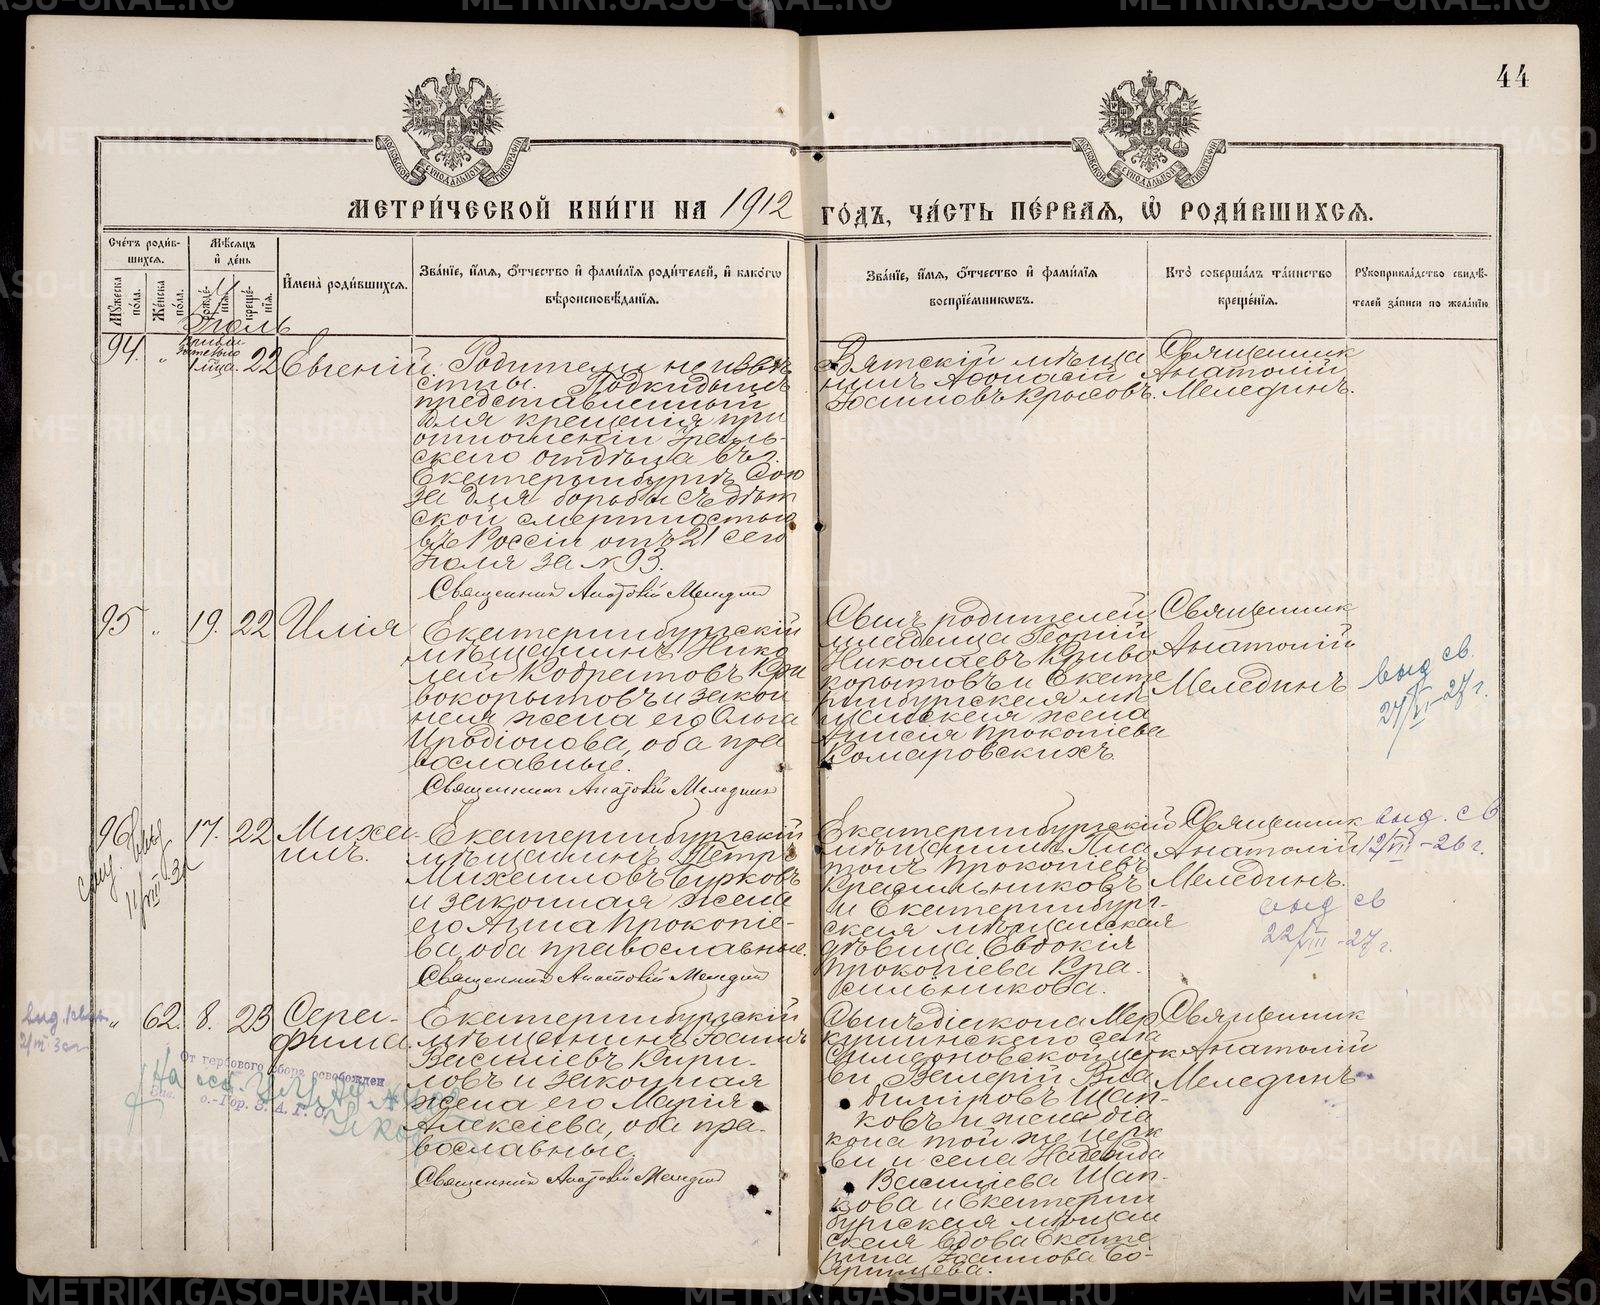 44
МЕТРИ́ЧЕСКОЙ КНИ́ГИ НА 1912 ГО́ДЪ, ЧА́СТЬ ПЕ́РВАЯ, Ѡ РОДИ́ВШИХСЯ.
Счетъ роди́в-
шихся.
Мꙋ́жеска по́ла.
Же́нска по́ла.
Мѣ́сяцъ
и де́нь
рожде́-
нїя.
креще́-
нїя.
И҆мена̀ роди́вшихся.
Зва́нїе, и҆́мя, ѻ҆́тчество и҆ фами́лїя роди́телей, и҆ како́гѡ
вѣроисповѣ́данїя.
Зва́нїе, и҆́мя, ѻ҆́тчество и҆ фами́лїя
воспрїе́мниковъ.
Кто̀ соверша́лъ та́инство
креще́нїя.
Рꙋкоприкла́дство свидѣ́-
телей за́писи по жела́нїю
Іюль
94. " 22 Евгеній.
Родители неизвѣ
стны. Подкидышъ
представленный
для крещенія при
отношеніи Ураль-
скаго отдѣла въ г.
Екатеринбургѣ Сою
за для борьбы съ дѣт
ской смертностью
въ Россіи отъ 21 сего
Іюля за № 93.
Священник Анатолій Меледин
Вятскій мѣща
нинъ Афонасій
Іосифовъ Крысовъ.
Священник
Анатолій
Меледин.
95 " 19. 22 Илія
Екатеринбургскій
мѣщанинъ Нико
лай Кодратовъ Кри
вокорытовъ и закон
ная жена его Ольга
Иродіонова, оба пра
вославные.
Священник Анатолій Меледин
Сынъ родителей
младенца Георгій
Николаевъ Криво
корытовъ и Екате
ринбургская мѣ
щанская жена
Анисія Прокопіева
Комаровскихъ.
Священник
Анатолій
Меледин
выд св.
27/VI-27 г.
96 17. 22 Миха-
илъ.
Екатеринбургскій
мѣщанинъ Петръ
Михаиловъ Бурковъ
и законная жена
его Анна Прокопіе-
ва, оба православные.
Священник Анатолій Меледин
Екатеринбургскій
мѣщанинъ Пла
тонъ Прокопіевъ
Красильниковъ
и Екатеринбург-
ская мѣщанская
дѣвица Евдокія
Прокопіева Кра-
сильникова.
Священник
Анатолій
Меледин.
выд. св
12/VI-26 г.
выд св
22/VIII-27 г.
" 62. 8. 23 Сера-
фима.
Екатеринбургскій
мѣщанинъ Іосифъ
Василіевъ Кири-
ловъ и законная
жена его Марія
Алексіева, оба пра-
вославные.
Священник Анатолій Меледин
От гербового сбора освобожден
Сынъ діакона Мер
кушинскаго села
Симеоновской церк
ви Валерій Вла
диміровъ Щап-
ковъ и жена діа
кона той же церк
ви и села Надежда
Василіева Щап-
кова и Екатерин
бургская мѣщан
ская вдова Екате
рина Іосифова
Священник
Анатолій
Меледин
METRIKI.GASO-URAL.RU